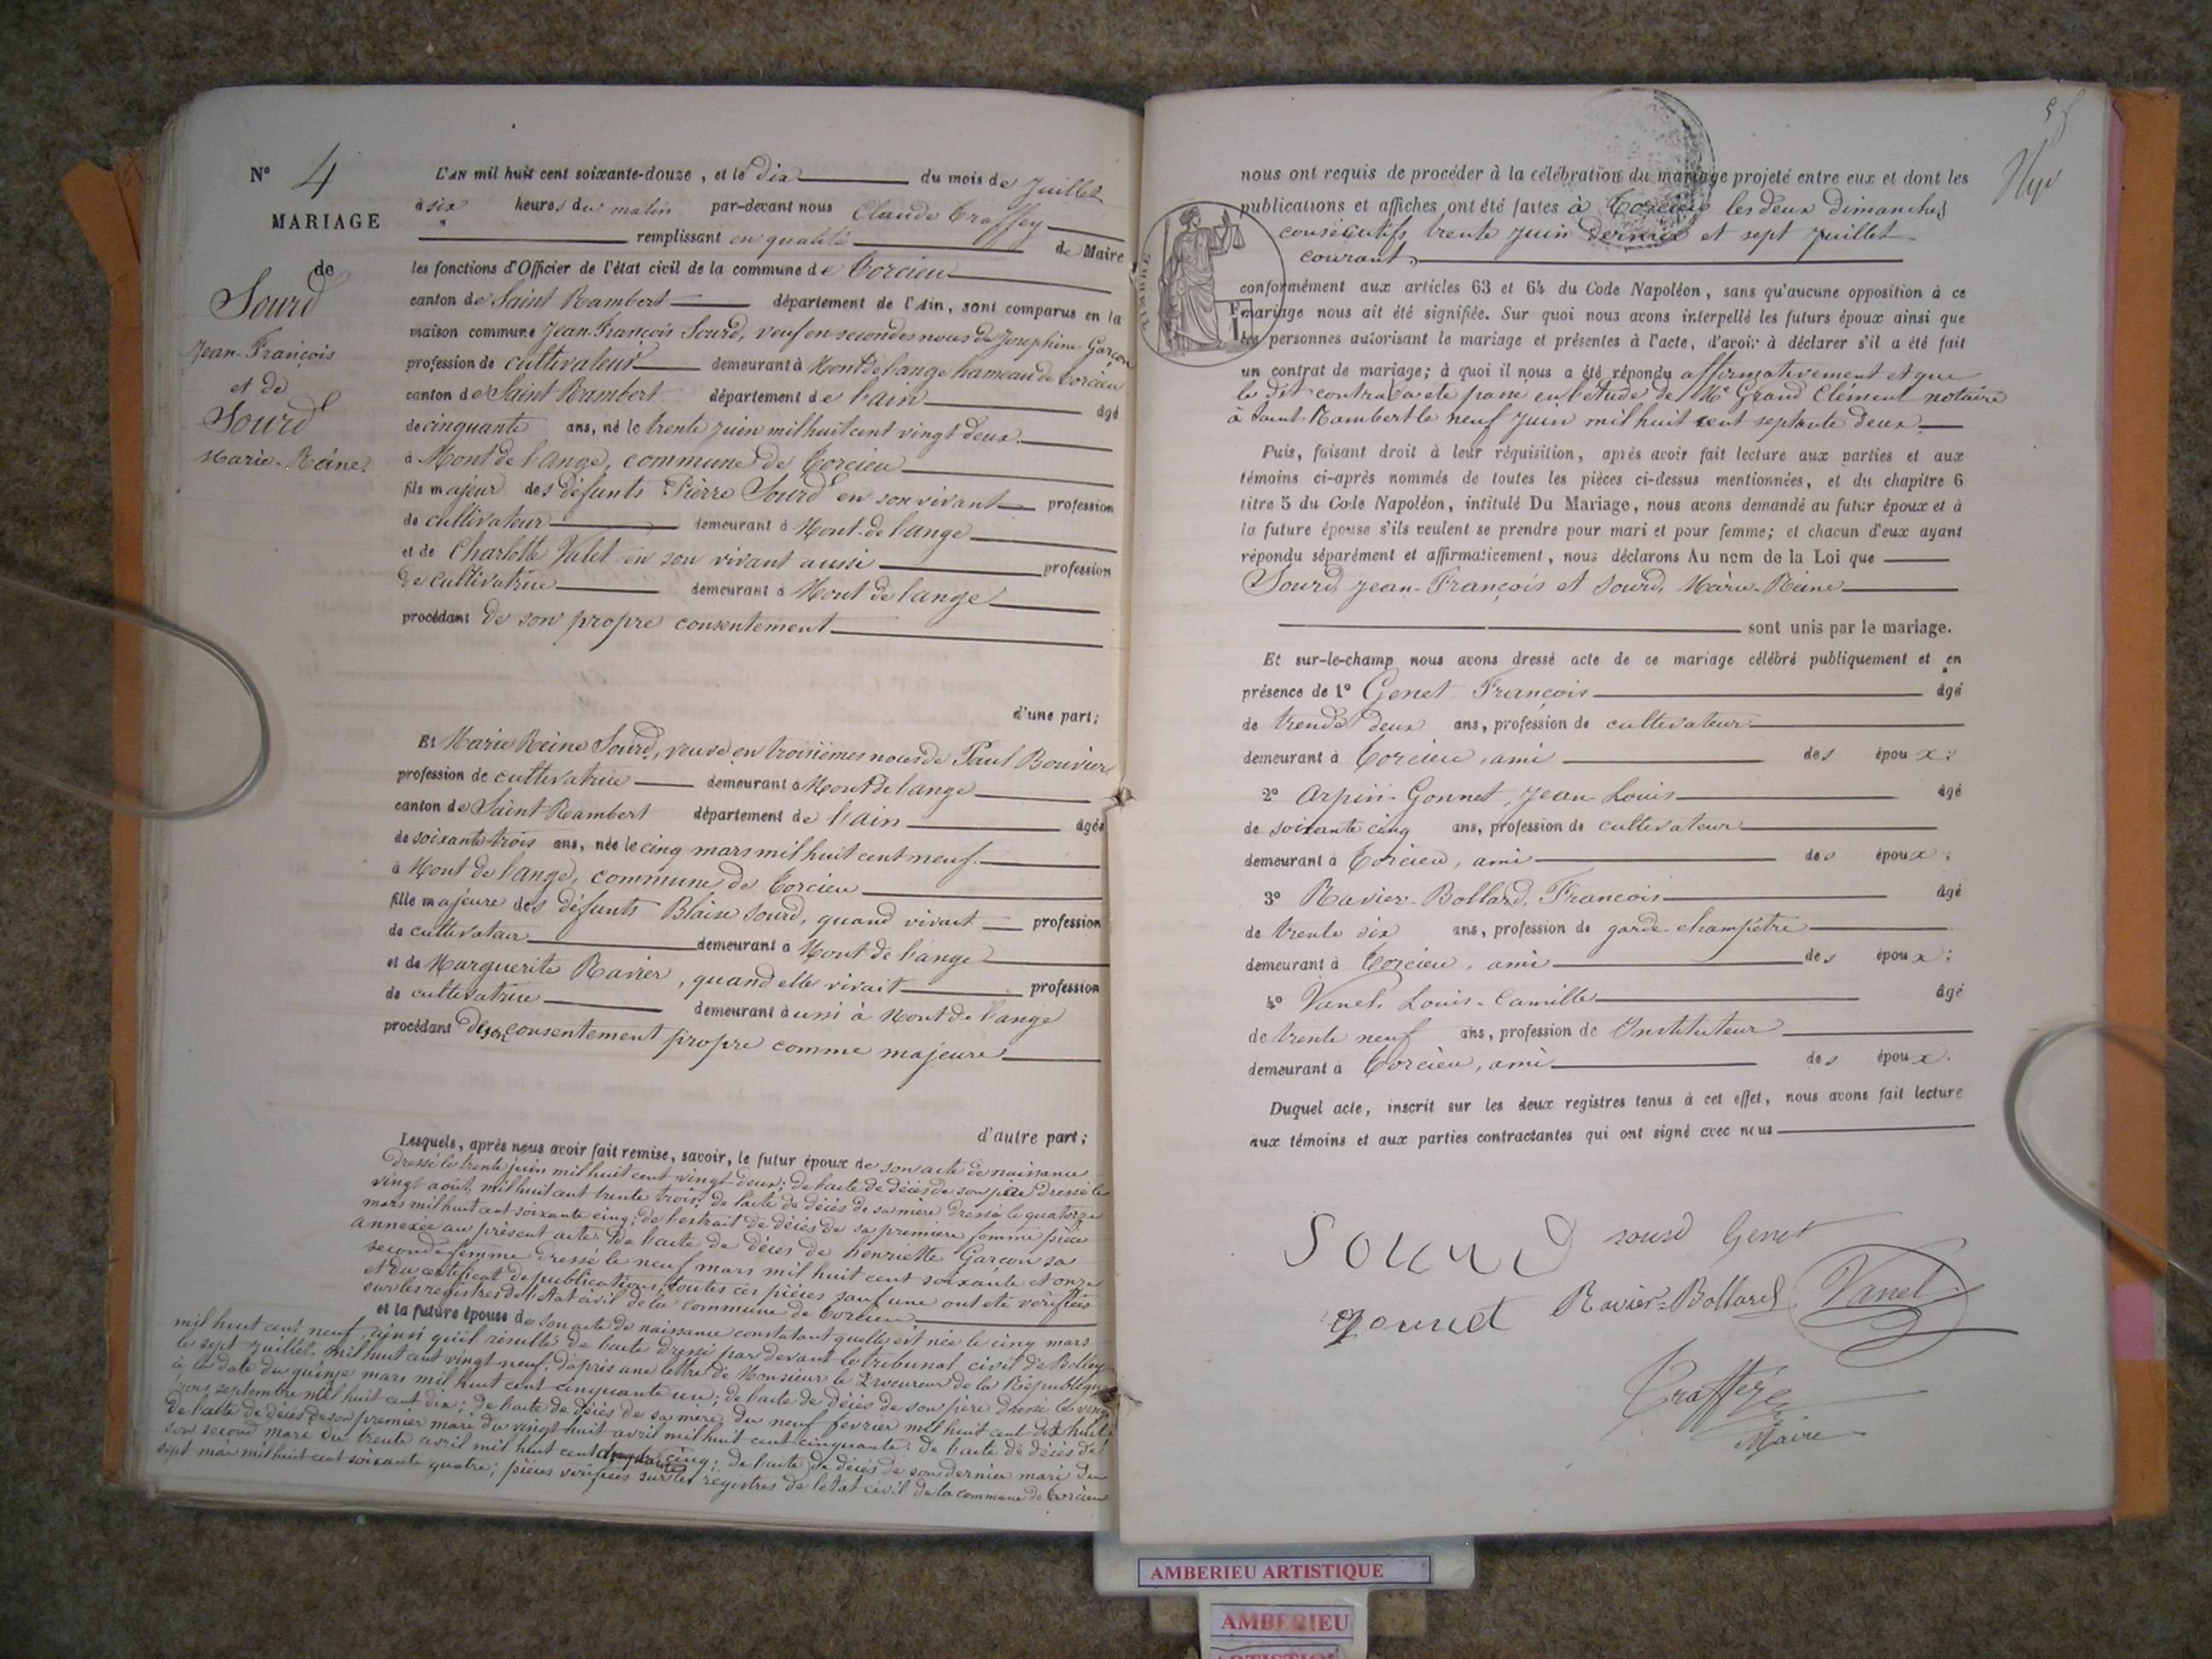 N° 4
MARIAGE
de
Sourd
Jean-François
et de
Sourd
Marie-Reine.
L'AN mil huit cent soixante-douze, et le dix du mois de Juillet
à six heures du matin par-devant nous Claude Traffey
remplissant en qualité de Maire
les fonctions d'Officier de l'état civil de la commune de Torcieu
canton de Saint Rambert département de l'Ain, sont comparus en la
maison commune Jean-François Sourd, veuf en secondes noces de Josephine Garçon
profession de cultivateur demeurant à Mont de l'ange hameau de Torcieu
canton de Saint Rambert département de l'ain âgé
de cinquante ans, né le trente juin mil huit cent vingt deux.
à Mont de l'ange, commune de Torcieu
fils majeur des défunts Pierre Sourd en son vivant profession
de cultivateur demeurant à Mont-de-l'ange
et de Charlotte en son vivant aussi profession
de cultivatrice demeurant à Mont de l'ange
procédant de son propre consentement
d'une part;
Et Marie Reine Sourd, veuve en troisièmes noces de Paul Bouvier
profession de cultivatrice demeurant à Mont de l'ange
canton de Saint-Rambert département de l'ain âgée
de soixante trois ans, née le cinq mars mil huit cent neuf.
à Mont de l'ange, commune de Torcieu
fille majeure des défunts Blaise Sourd, quand vivait profession
de cultivateur demeurant à Mont de l'ange
et de Marguerite Ravier, quand elle vivait profession
de cultivatrice demeurant aussi à Mont de l'ange
procédant de son consentement propre comme majeure
d'autre part;
Lesquels, après nous avoir fait remise, savoir, le futur époux de son acte de naissance
dressé le trente juin mil huit cent vingt deux; de l'acte de décès de son père dressé le
vingt août, mil huit cent trente trois; de l'acte de décès de sa mère dressé le quatorze
mars mil huit cent soixante cinq; de l'extrait de décès de sa première femme pièce
annexée au présent acte. De l'acte de décès de henriette Garçon sa
seconde femme dressé le neuf mars mil huit cent soixante et onze
et du certificat de publications, toutes ces pièces sauf une ont été vérifiées
sur les registres de l'état civil de la commune de Torcieu
et la future épouse de son acte de naissance constatant qu'elle est née le cinq mars
mil huit cent neuf, ainsi qu'il résulte de l'acte dressé par devant le tribunal civil de Belley
le sept juillet mil huit cent vingt-neuf, d'après une lettre de Monsieur le Procureur de la République
à la date du quinze mars mil huit cent cinquante un; de l'acte de décès de son père dressé le vingt
trois septembre mil huit cent dix; de l'acte de décès de sa mère du neuf février mil huit cent dix huit;
de l'acte de décès de son premier mari du vingt-huit avril mil huit cent cinquante; de l'acte de décès de
son second mari du trente avril mil huit cent cinquante cinq; de l'acte de décès de son dernier mari du
sept mai mil huit cent soixante quatre; pièces vérifiées sur les registres de l'état civil de la commune de Torcieu
nous ont requis de procéder à la célébration du mariage projeté entre eux et dont les
publications et affiches ont été faites à Torcieu les deux dimanches
consécutifs trente juin dernier et sept juillet
courant,
conformément aux articles 63 et 64 du Code Napoléon, sans qu'aucune opposition à ce
mariage nous ait été signifiée. Sur quoi nous avons interpellé les futurs époux ainsi que
les personnes autorisant le mariage et présentes à l'acte, d'avoir à déclarer s'il a été fait
un contrat de mariage; à quoi il nous a été répondu affirmativement et que
le dit contrat a été passé en l'étude de Me Grand Clément notaire
à Saint Rambert le neuf juin mil huit cent septante deux.
Puis, faisant droit à leur réquisition, après avoir fait lecture aux parties et aux
témoins ci-après nommés de toutes les pièces ci-dessus mentionnées, et du chapitre 6
titre 5 du Code Napoléon, intitulé Du Mariage, nous avons demandé au futur époux et à
la future épouse s'ils veulent se prendre pour mari et pour femme; et chacun d'eux ayant
répondu séparément et affirmativement, nous déclarons Au nom de la Loi que
Sourd, Jean-François et Sourd, Marie-Reine
sont unis par le mariage.
Et sur-le-champ nous avons dressé acte de ce mariage célébré publiquement et en
présence de 1° Genet François âgé
de trente deux ans, profession de cultivateur
demeurant à Torcieu, ami des époux;
2° Arpin-Gonnet, Jean Louis âgé
de soixante cinq ans, profession de cultivateur
demeurant à Torcieu, ami des époux;
3° Ravier-Bollard, François âgé
de trente six ans, profession de garde-champêtre
demeurant à Torcieu, ami des époux;
4° Vanel, Louis-Camille âgé
de trente neuf ans, profession de Instituteur
demeurant à Torcieu, ami des époux.
Duquel acte, inscrit sur les deux registres tenus à cet effet, nous avons fait lecture
aux témoins et aux parties contractantes qui ont signé avec nous
Sourd sourd Genet
Ravier-Bollard Vanel
Traffey
Maire
TIMBRE
AMBERIEU ARTISTIQUE
AMBERIEU
ARTISTIQUE